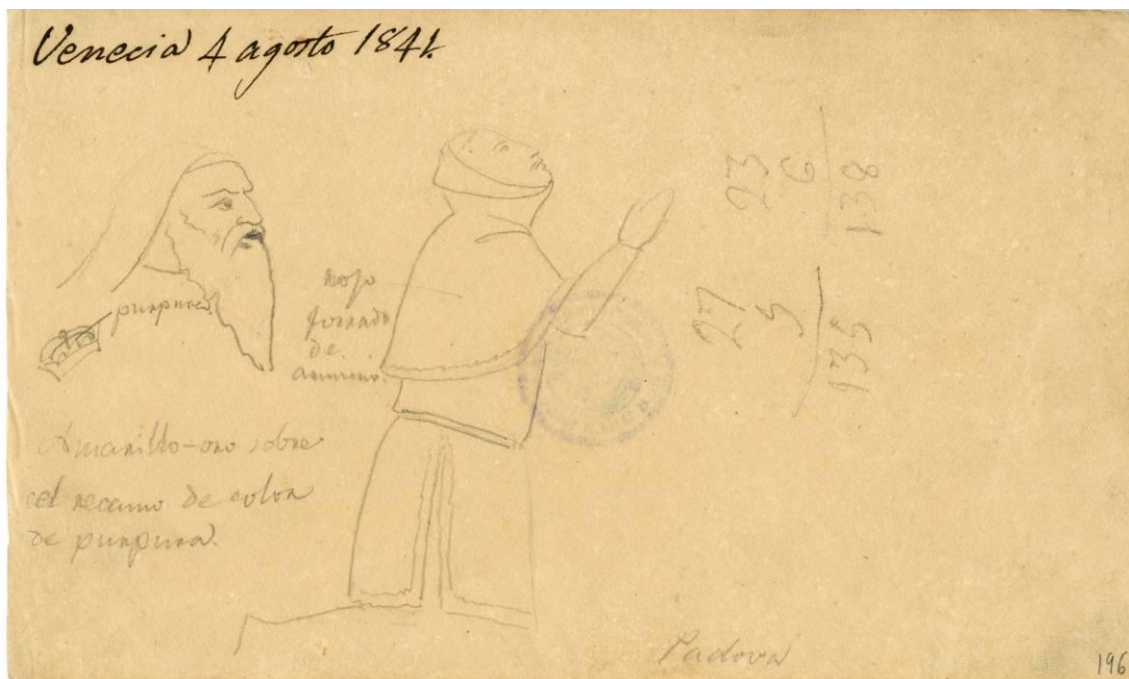 Venecia 4 agosto 1841.
purpura
rojo
forrado
de
Amarillo-oro sobre
el recamo de color
de purpura.
23
6
138
27
5
135
Padova
196